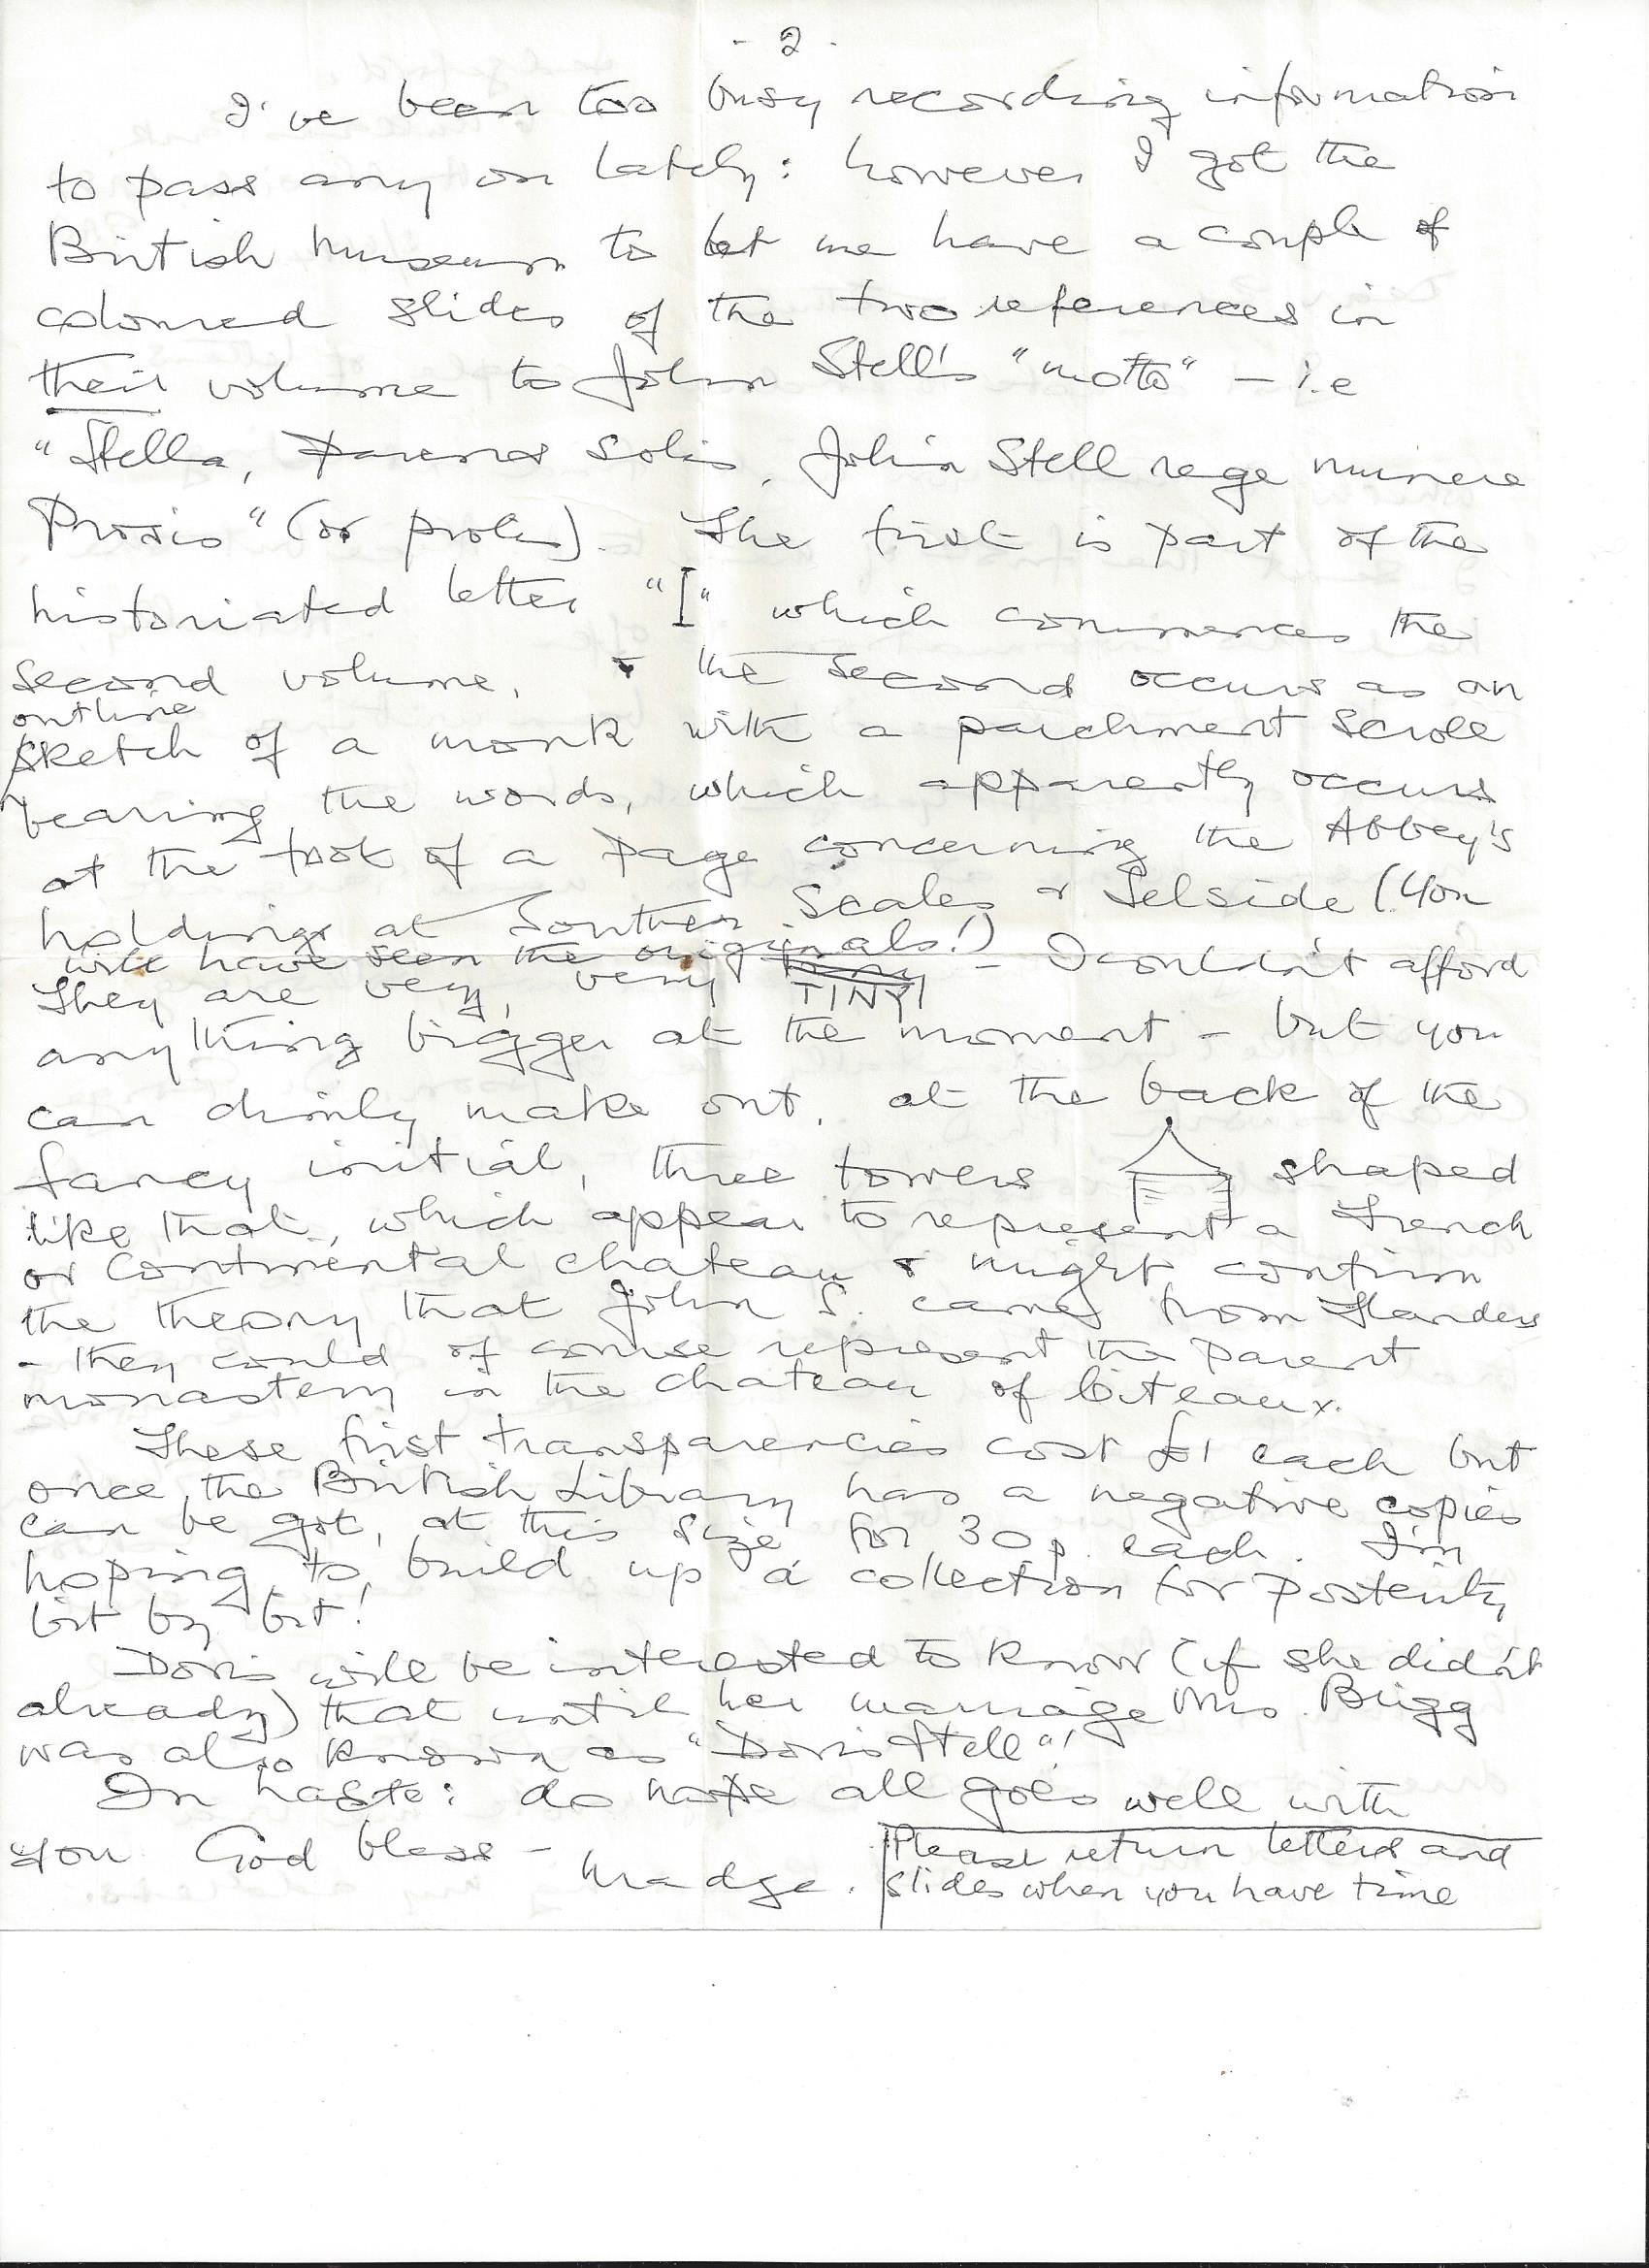 - 2 -
I've been too busy recording information
to pass any on lately: however I got the
British Museum to let me have a couple of
coloured slides of the two references in
their volume to John Stell's "motto" - i.e
"Stella, parens solis, John Stell rege munere
Prosis" (or prolis). The first is part of the
historiated letter "I" which commences the
second volume, & the second occurs as an
outline
sketch of a monk with a parchment scroll
bearing the words, which apparently occurs
at the foot of a page concerning the Abbey's
holdings at Souther Scales & Selside (You
will have seen the originals!)
They are very, very TINY! - I couldn't afford
anything bigger at the moment - but you
can dimly make out, at the back of the
fancy initial, three towers shaped
like that, which appear to represent a French
or Continental chateau & might confirm
the theory that John S. came from Flanders
- they could of course represent the parent
monastery in the chateau of Citeaux.
These first transparencies cost £1 each but
once the British Library has a negative copies
can be got, at this size for 30p each. I'm
hoping to build up a collection for posterity
bit by bit!
Doris will be interested to know (if she didn't
already) that until her marriage Mrs. Brigg
was also known as "Doris Stell"!
In haste: do hope all goes well with
you God bless - Madge.
Please return letters and
slides when you have time